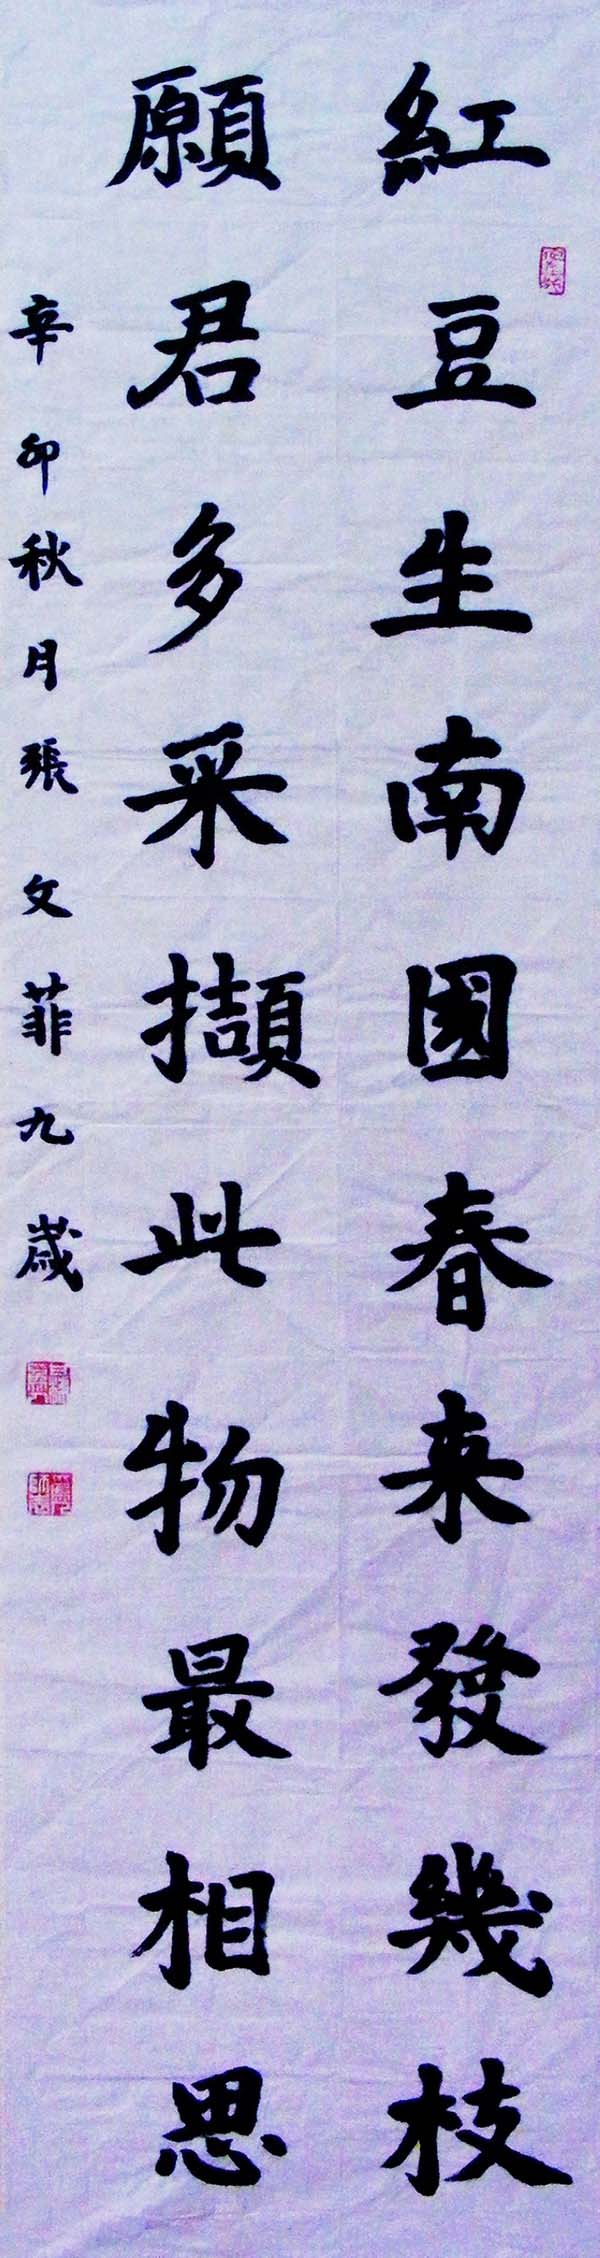 紅豆生南國春来發幾枝
願君多采擷此物最相思
辛卯秋月張文菲九歲